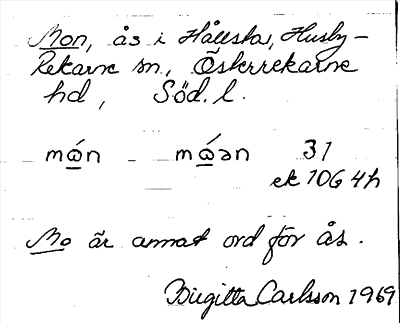 Mon, ås i Hållsta, Husby-
Rekarne sn, Österrekarne
hd, Söd. l.
mάn - mάən 31
ek 10G 4h
Mo är annat ord för ås.
Birgitta Carlsson 1969